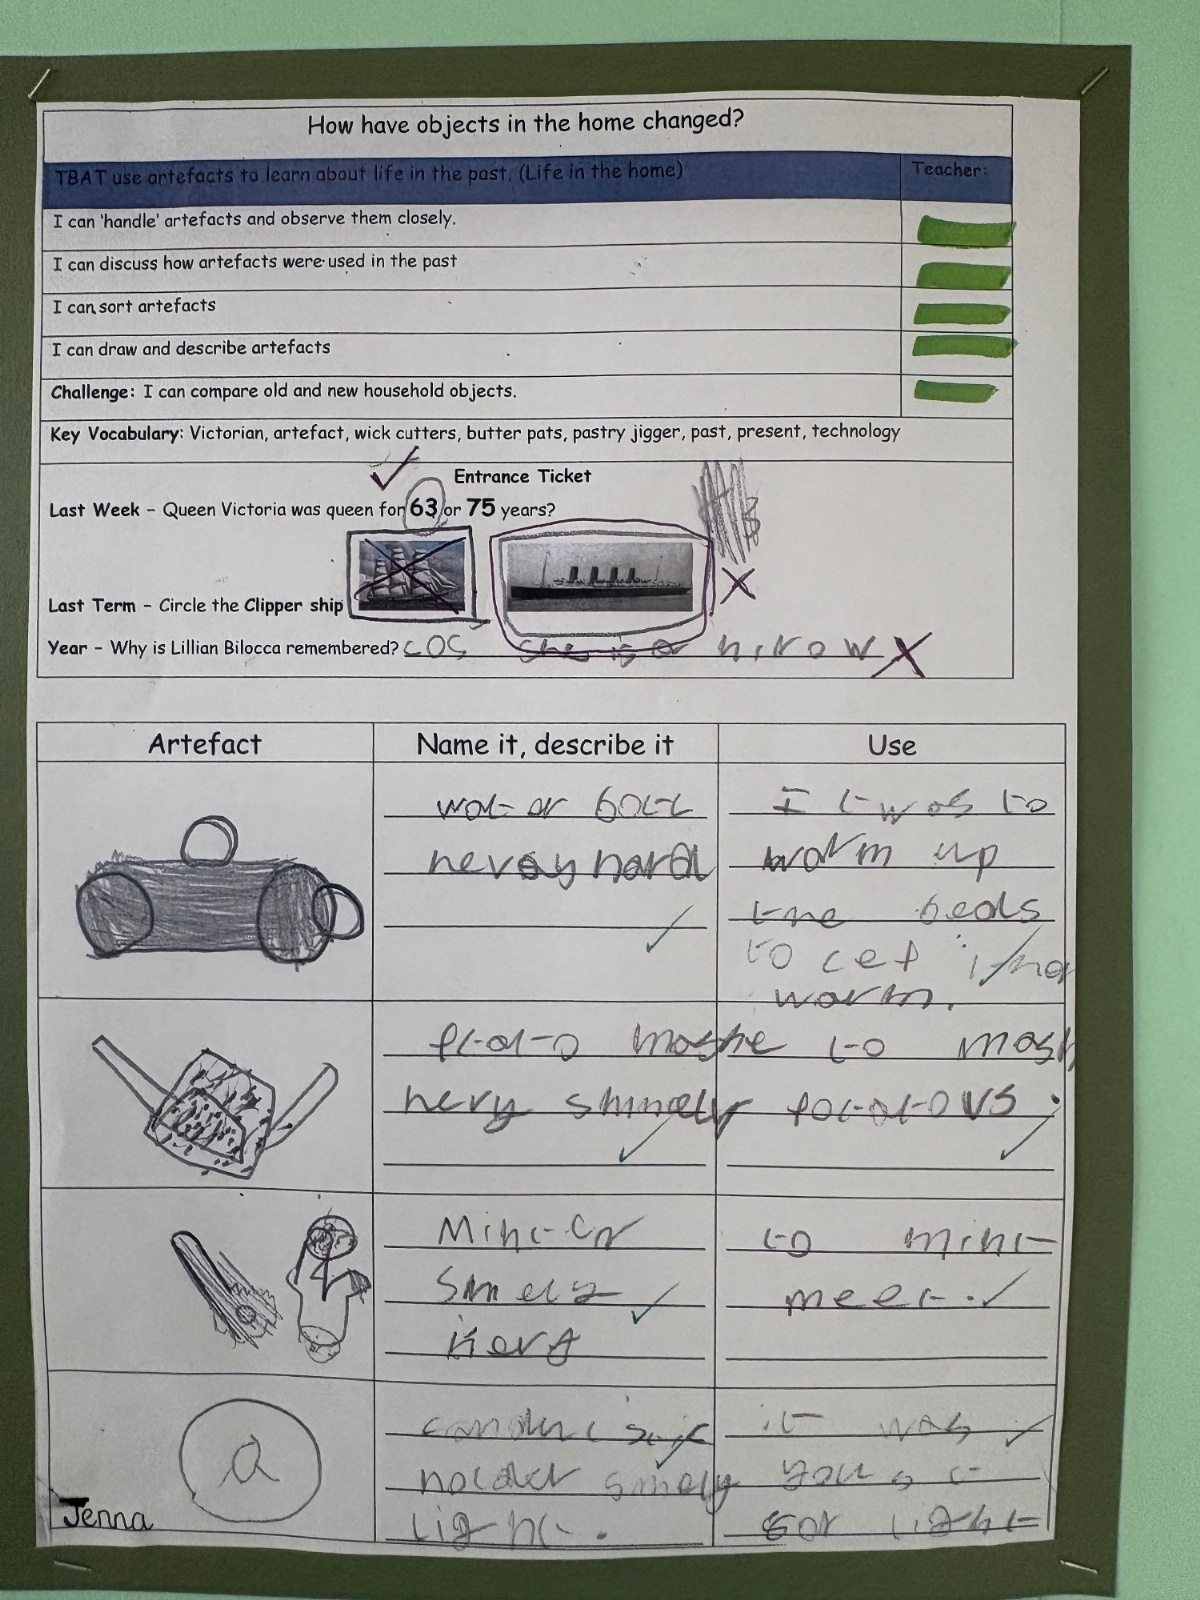 How have objects in the home changed?
TBAT use artefacts to learn about life in the past. (Life in the home) Teacher:
I can 'handle' artefacts and observe them closely.
I can discuss how artefacts were used in the past
I can sort artefacts
I can draw and describe artefacts
Challenge: I can compare old and new household objects.
Key Vocabulary: Victorian, artefact, wick cutters, butter pats, pastry jigger, past, present, technology
Entrance Ticket
Last Week – Queen Victoria was queen for 63 or 75 years?
Last Term – Circle the Clipper ship
Year – Why is Lillian Bilocca remembered? cos she is a hirow
Artefact Name it, describe it Use
wator bott
hevay hard
It was to
warm up
the beds
to cet
warm.
potato mashe
hevy shinely
to mash
potatovs.
Mintcr
Smely
hevy
to mint
meet.
holder smely
light.
it was
yous t
for light
a
Jenna